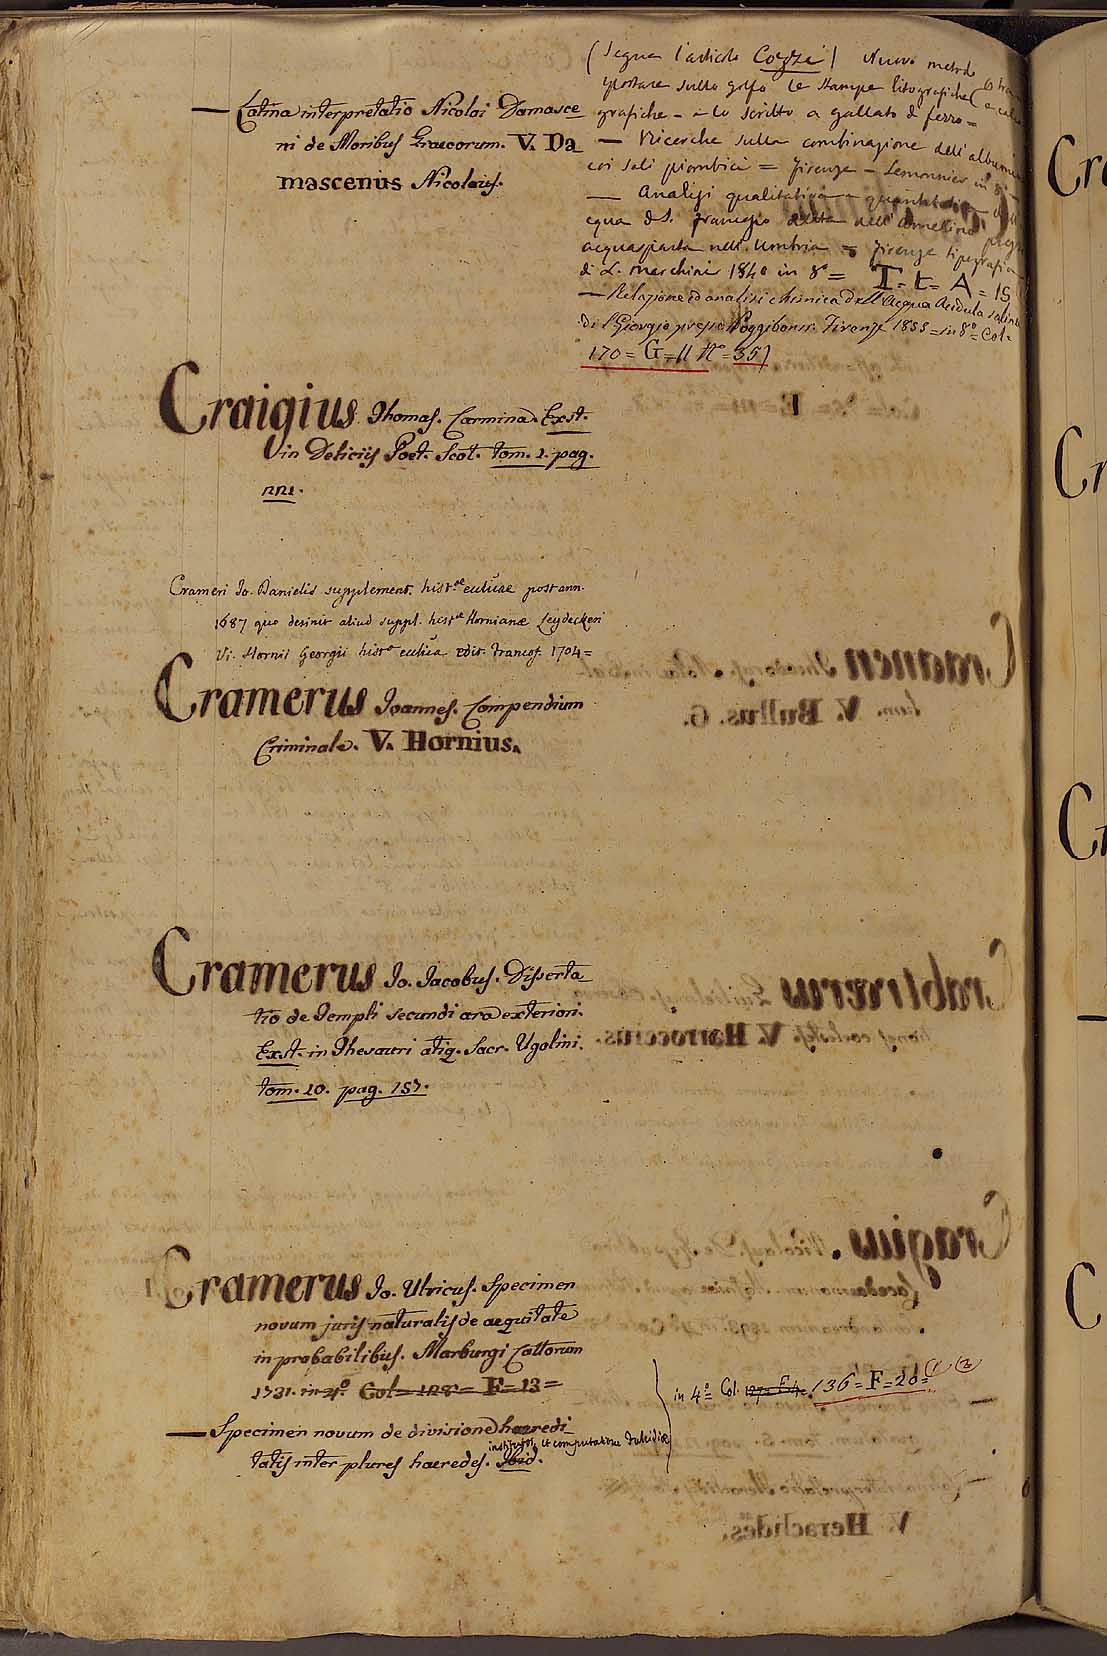 — Latina interpretatio Nicolai Damasce
ni de Moribus Graecorum. V. Da
mascenus Nicolaus.
(Segue l'articolo Cozzi) Nuovo metodo
sullo le stampe litografiche
grafiche = e lo scritto a gallato di ferro =
— Ricerche sulla combinazione dell'albumina
coi sali piombici = Firenze = Lemonnier in 8°
— Analisi qualitativa e quantitativa dell'
acqua di S. Francesco detta dell'Amerino
acquasparta nell'Umbria = Firenze tipografia
di L. Marchini 1840 in 8° = T = t = A = 15
— Relazione ed analisi chimica dell'Acqua Acidula salina
di S. Giorgio presso Poggibonsi. Firenze 1855 = in 8° = Col.
170 = G = 11 N° = 35)
Craigius Thomas. Carmina. Exst.
in Deliciis Poet. Scot. tom. 1. pag.
221.
Crameri Io. Danielis supplement. hist.ae eccl.cae post ann.
1687 quo desinit aliud suppl. hist.ae Hornianæ Leydeckeri
Vi. Hornii Georgii hist.a eccl.ca edit. Francof. 1704 =
Cramerus Ioannes. Compendium
Criminale. V. Hornius.
Cramerus Io. Jacobus. Disserta
tio de Templi secundi ara exteriori.
Exst. in Thesauri atiq. Sacr. Ugolini.
tom. 10. pag. 157.
Cramerus Io. Ulricus. Specimen
novum juris naturalis de aequitate
in probabilibus. Marburgi Cattorum
1731. in 4°. Col = 128 = F = 13 =
in 4° = Col. 127 = F. 4 = 136 = F = 20 = (1) (2)
— Specimen novum de divisione haeredi
institutos, et computatione
tatis inter plures haeredes. Ibid.